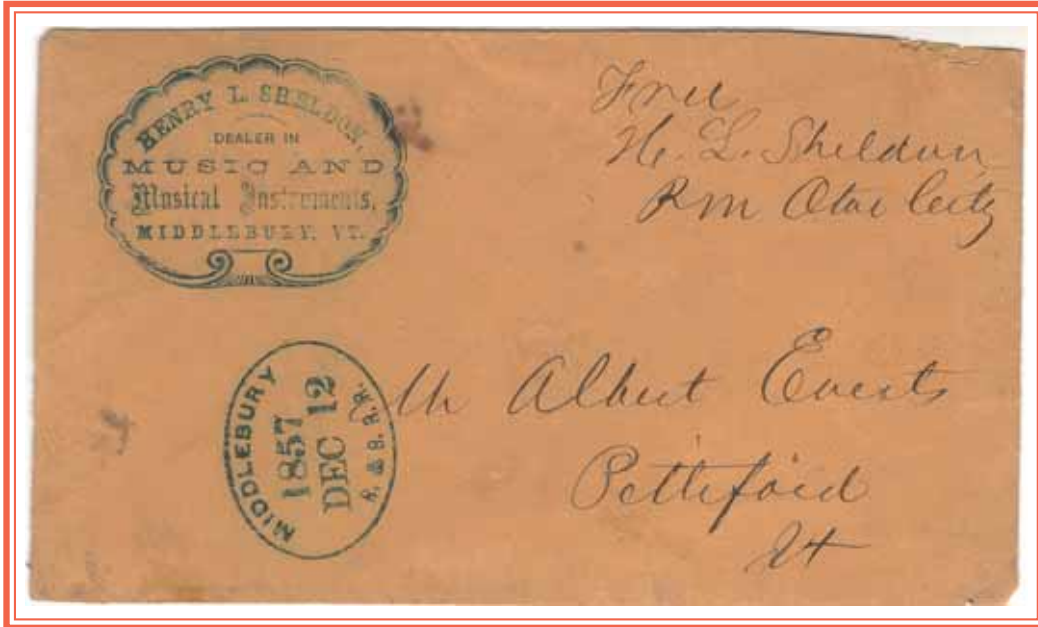 HENRY L. SHELDON,
DEALER IN
MUSIC AND
Musical Instruments,
MIDDLEBURY, VT.
Free
H. L. Sheldon
P.m Otter City
MIDDLEBURY
1857
DEC 12
R. & B. R.R.
Mr Albert Everts
Vt